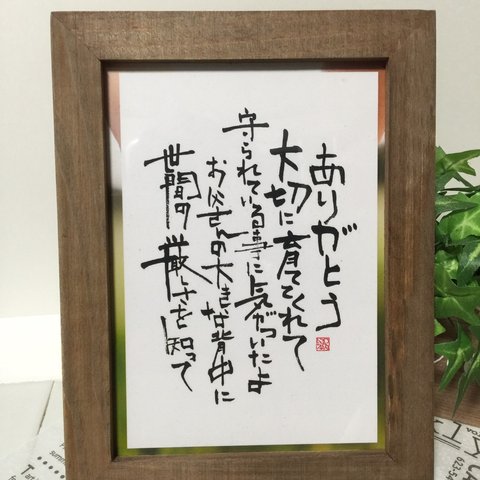 世間の厳しさを知って
お父さんの大きな背中に
守られている事に気がついたよ
大切に育ててくれて
ありがとう
623-54